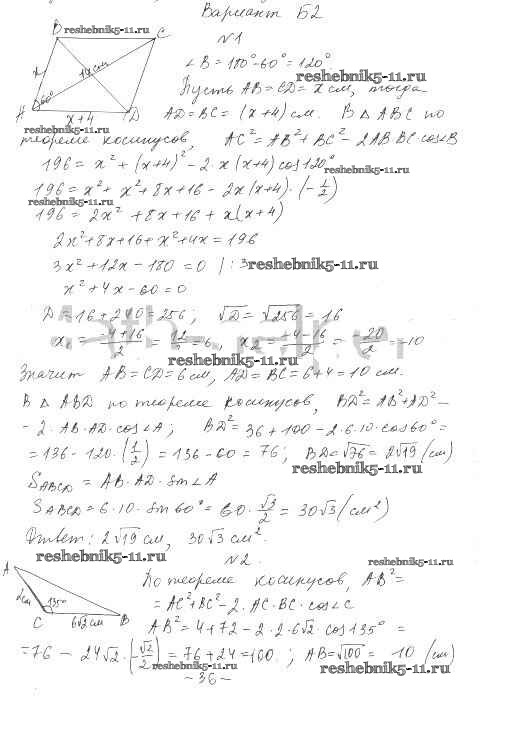 Вариант Б2
N1
B reshebnik5-11.ru C
x 14 см
A 60° D
x+4
reshebnik5-11.ru
∠B = 180° - 60° = 120°
reshebnik5-11.ru
Пусть AB = CD = x см, тогда
AD = BC = (x+4) см. В △ABC по
теореме косинусов, AC² = AB² + BC² - 2AB·BC·cos∠B
196 = x² + (x+4)² - 2·x(x+4)cos120°
reshebnik5-11.ru
196 = x² + x² + 8x + 16 - 2x(x+4)·(-1/2)
reshebnik5-11.ru
196 = 2x² + 8x + 16 + x(x+4)
2x² + 8x + 16 + x² + 4x = 196
3x² + 12x - 180 = 0 / : 3 reshebnik5-11.ru
x² + 4x - 60 = 0
D = 16 + 240 = 256; √D = √256 = 16
x₁ = (-4+16)/2 = 12/2 = 6, x₂ = (-4-16)/2 = -20/2 = -10
reshebnik5-11.ru
Значит AB = CD = 6 см, AD = BC = 6+4 = 10 см.
В △ABD по теореме косинусов, BD² = AB² + AD² -
- 2·AB·AD·cos∠A; BD² = 36 + 100 - 2·6·10·cos60° =
= 136 - 120·(1/2) = 136 - 60 = 76; BD = √76 = 2√19 (см)
reshebnik5-11.ru
S_ABCD = AB·AD·sin∠A
S_ABCD = 6·10·sin60° = 60·√3/2 = 30√3 (см²)
reshebnik5-11.ru
Ответ: 2√19 см, 30√3 см².
reshebnik5-11.ru N2. reshebnik5-11.ru
A
2см 135°
C 6√2 см B
По теореме косинусов, AB² =
= AC² + BC² - 2·AC·BC·cos∠C
AB² = 4 + 72 - 2·2·6√2·cos135° =
= 76 - 24√2·(-√2/2) = 76 + 24 = 100; AB = √100 = 10 (см)
reshebnik5-11.ru reshebnik5-11.ru
- 36 -